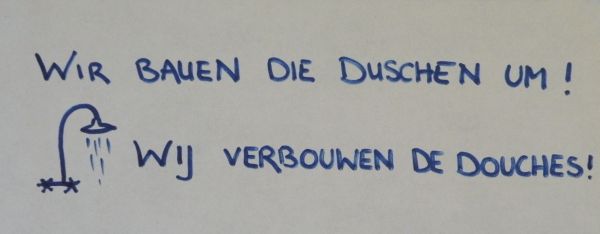 WIR BAUEN DIE DUSCHEN UM!
WIJ VERBOUWEN DE DOUCHES!